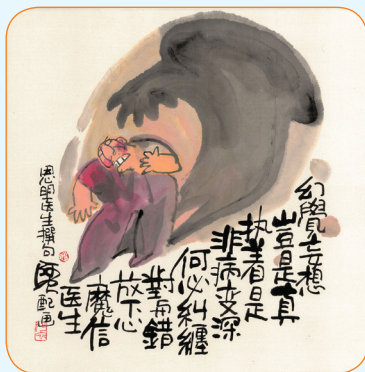 幻覺妄想
豈是真
执着是
非病变深
何必糾纏
對錯
放下心
魔信
医生
思明医生撰句
配画